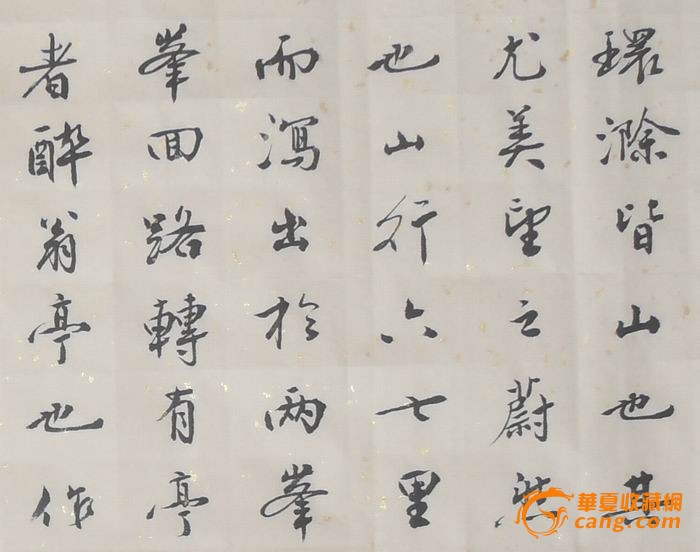 環滁皆山也其
尤美望之蔚然
也山行六七里
而瀉出於两峯
峯回路轉有亭
者醉翁亭也作
華夏收藏網
cang.com